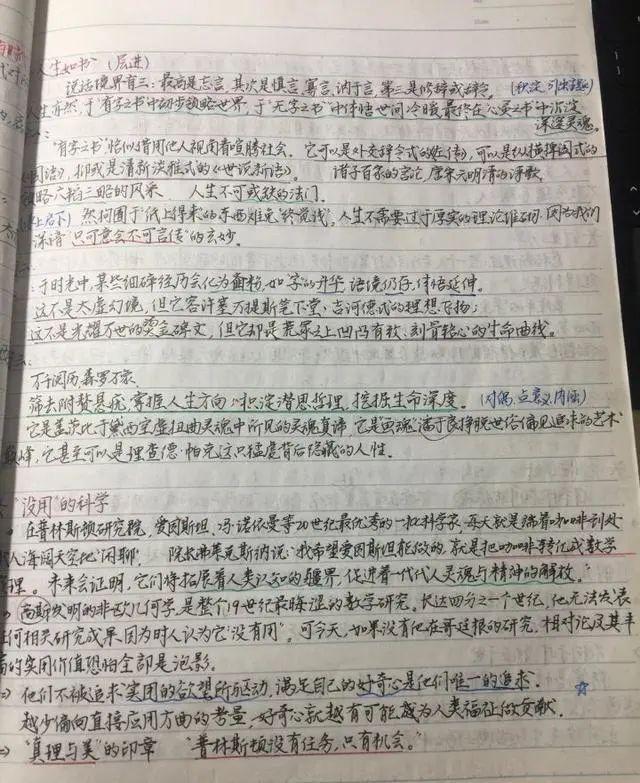 人生如书 （层进）
说话境界有三：最高是忘言，其次是慎言，寡言，讷于言，第三是修辞或辞令。
人生亦然，于“有字之书”中初步领略世界，于“无字之书”中体悟世间冷暖，最终在“心灵之书”中沉淀
深邃灵魂。
“有字之书”恰似借用他人视角看喧腾社会。它可以是外交辞令式的《左传》，可以是纵横捭阖式的
《国语》，抑或是清新淡雅式的《世说新语》。 诸子百家的言论，唐宋元明清的诗歌
领略六韬三略的风采 人生不可或缺的法门。
（承上启下） 然囿于“纸上得来”的东西难免“终觉浅”，人生不需要过于厚实的理论堆砌，因为我们
深谙“只可意会不可言传”的玄妙。
于时光中，某些细碎经历会化为齑粉，如“字”的升华，语境仍存，体悟延伸。
这不是太虚幻境，但它容许塞万提斯笔下堂·吉诃德式的理想飞扬；
这不是光耀万世的碑文，但它却是荒冢之上凹凸有致、刻骨铭心的生命曲线。
万千阅历森罗万象
筛去附赘悬疣，掌握人生方向；积淀智思哲理，挖掘生命深度。 （对偶，点意义，内涵）
它是莱茨比于黛西空虚扭曲灵魂中所见的灵魂真谛，它是“鱼魂”潘于良挣脱世俗偏见追求的艺术
巅峰，它甚至可以是理查德·帕克这只猛虎背后隐藏的人性。
“没用”的科学
在普林斯顿研究院，爱因斯坦、冯·诺依曼等20世纪最优秀的一批科学家，每天就是端着咖啡到处
找人海阔天空地“闲聊”。 院长弗莱克斯纳说：“我希望爱因斯坦能做的，就是把咖啡转化成数学
定理。未来会证明，它们将拓展着人类认知的疆界，促进着一代代人灵魂与精神的解放。”
高斯发明的非欧几何学，是整个19世纪最晦涩的数学研究。长达四分之一个世纪，他无法发表
任何相关研究成果，因为时人认为它“没有用”。可今天，如果没有他在哥廷根的研究，相对论及其丰
富的实用价值恐怕全部是泡影。
他们不被追求实用的欲望所驱动，满足自己的好奇心是他们唯一的追求。
越少偏向直接应用方面的考量，好奇心就越有可能为人类福祉做贡献。
“真理与美”的印章 “普林斯顿没有任务，只有机会。”